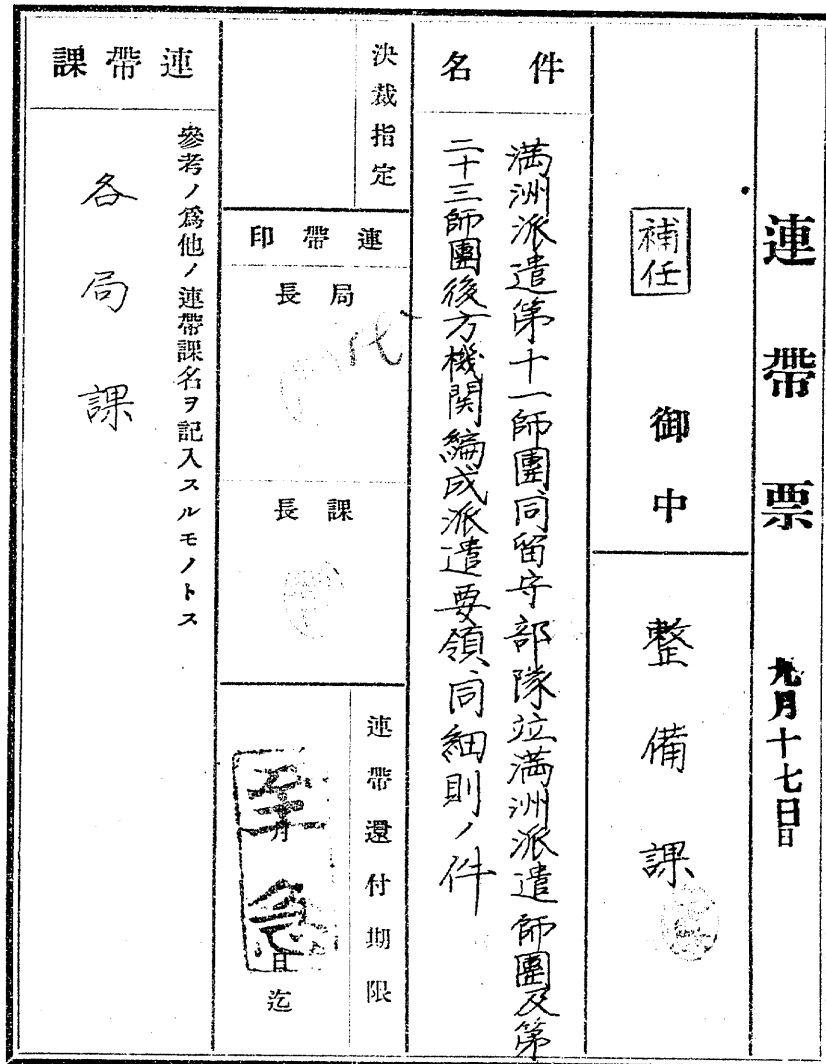 連帶票 九月十七日日
補任 御中
整備課
件名
満洲派遣第十一師團同留守部隊竝満洲派遣師團及第
二十三師團後方機関編成派遣要領同細則ノ件
決裁指定
連帶印
局長
代
課長
連帶還付期限
月 日迄
至急
連帶課
參考ノ爲他ノ連帶課名ヲ記入スルモノトス
各局課